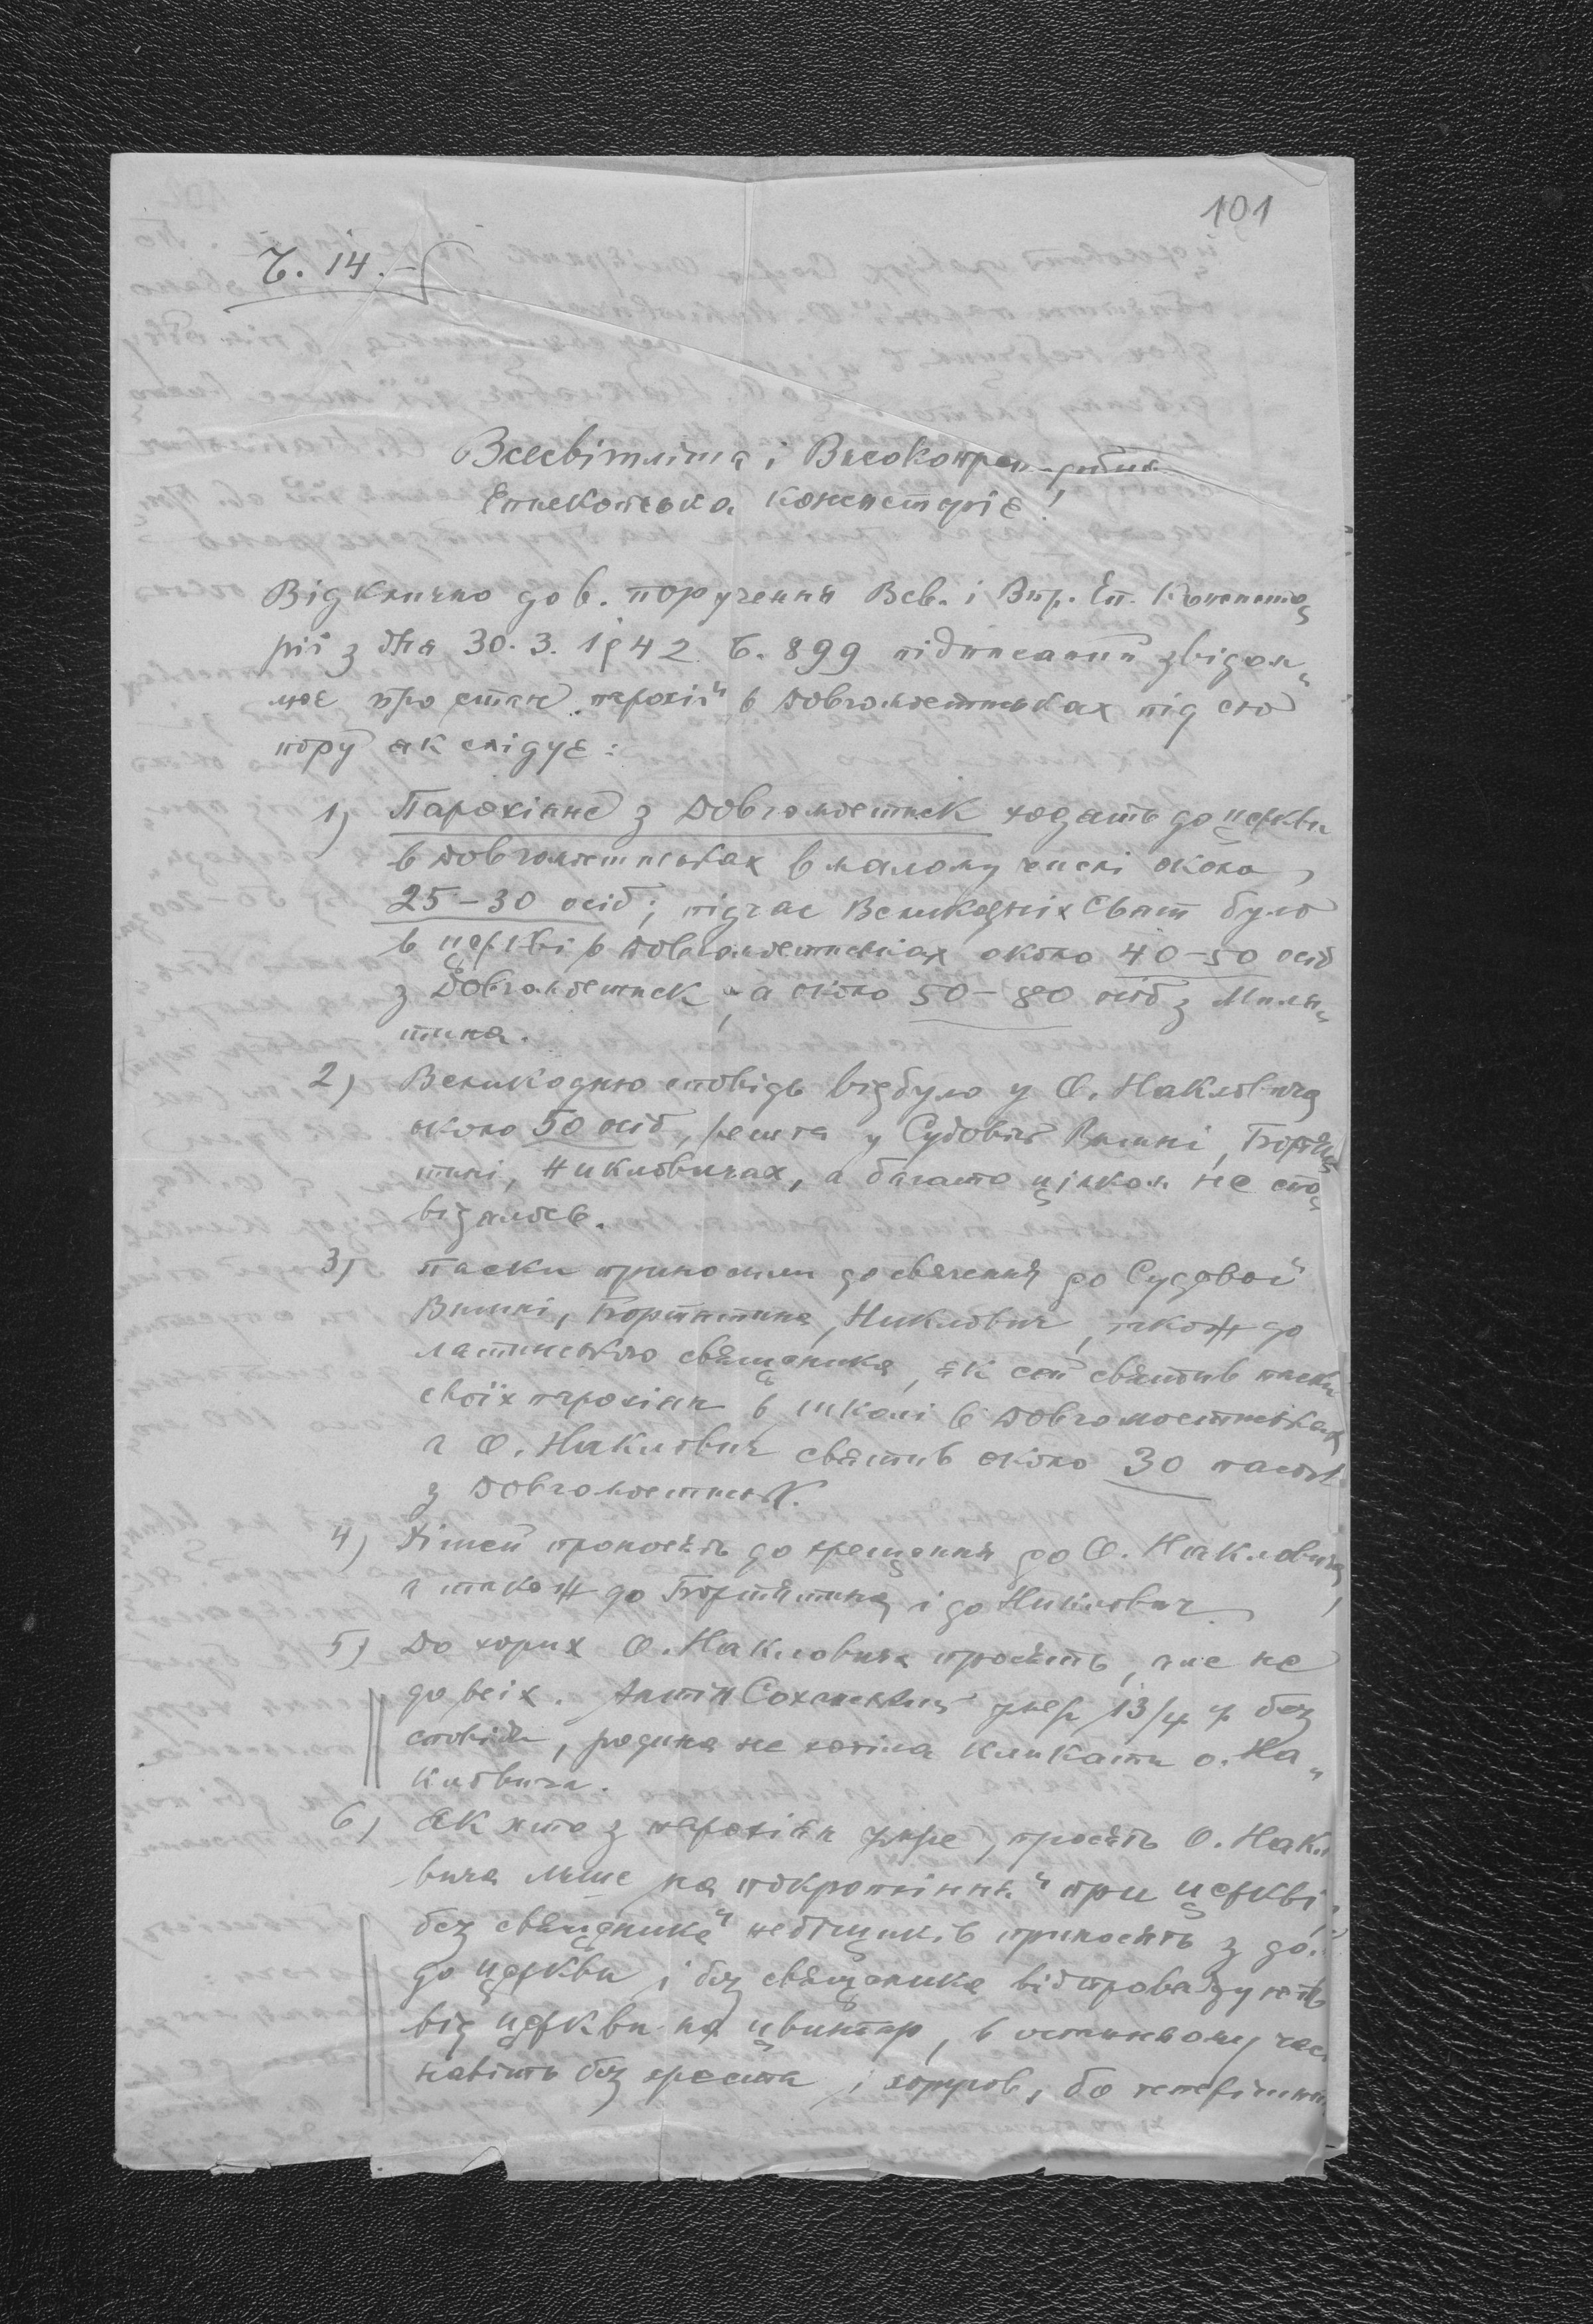 101
Ч. 14.
Всесвітліша і Високопреподобна
Епископська Консисторіє!
Відклично до в. поручення Всв. і Впр. Еп. Консисто„
рії з дня 30. 3. 1942 Ч. 899 підписаний звідом„
ляє про стан парохії в Довгомостиськах під сю
пору як слідує:
1) Парохіяне з Довгомостиск ходять до церкви
в Довгомостиськах в малому числі около
25–30 осіб; підчас Великодніх Свят було
в церкві в Довгомостиськах около 40–50 осіб
з Довгомостиск, а около 50–80 осіб з Миля„
тина.
2) Великодню сповідь відбуло у О. Накловича
около 50 осіб, решта у Судовій Вишні, Бортя„
тині, Никловичах, а багато цілком не спо„
відалось.
3) Паски приносили до свячення до Судової
Вишні, Бортятина, Никлович, також до
латинського священика, як сей святив паски
своїх парохіян в школі в Довгомостиськах,
а О. Наклович святив около 30 пасок
з Довгомостиськ.
4) Дітей приносять до крещення до О. Накловича,
а також до Бортятина і до Никлович.
5) До хорих О. Накловича просять, але не
до всіх. Антін умер 13/4 ц.р. без
сповіди, родина не хотіла кликати о. На„
кловича.
6) Як хто з парохіян умре, просять О. Накло
вича лише на покроплення при церкві,
без священика небіщиків приносять з до
до церкви і без священика відпроваджують
від церкви на цвинтар, в останньому час
навіть без хреста і хоругов, бо теперішни